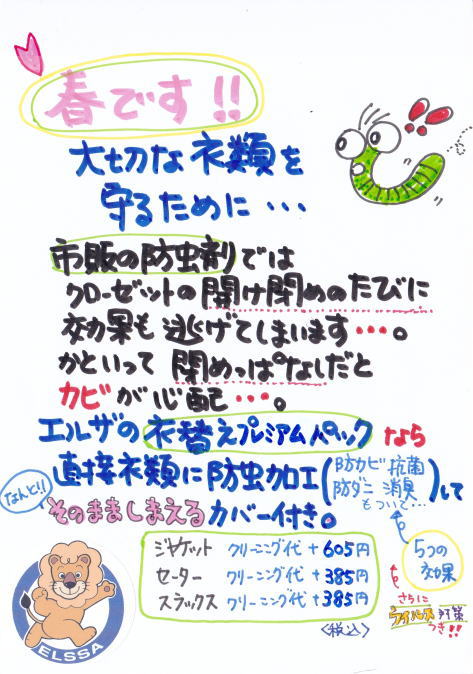 春です!!
大切な衣類を
守るために・・・
市販の防虫剤では
クローゼットの開け閉めのたびに
効果も逃げてしまいます・・・。
かといって閉めっぱなしだと
カビが心配・・・。
エルザの衣替えプレミアムパックなら
直接衣類に防虫加工(防カビ 抗菌
防ダニ 消臭
もついて・・・)して
なんと!!
そのまましまえるカバー付き。
5つの
効果
ジャケット クリーニング代 + 605円
セーター クリーニング代 + 385円
スラックス クリーニング代 + 385円
<税込>
さらに
対策
つき!!
ELSSA